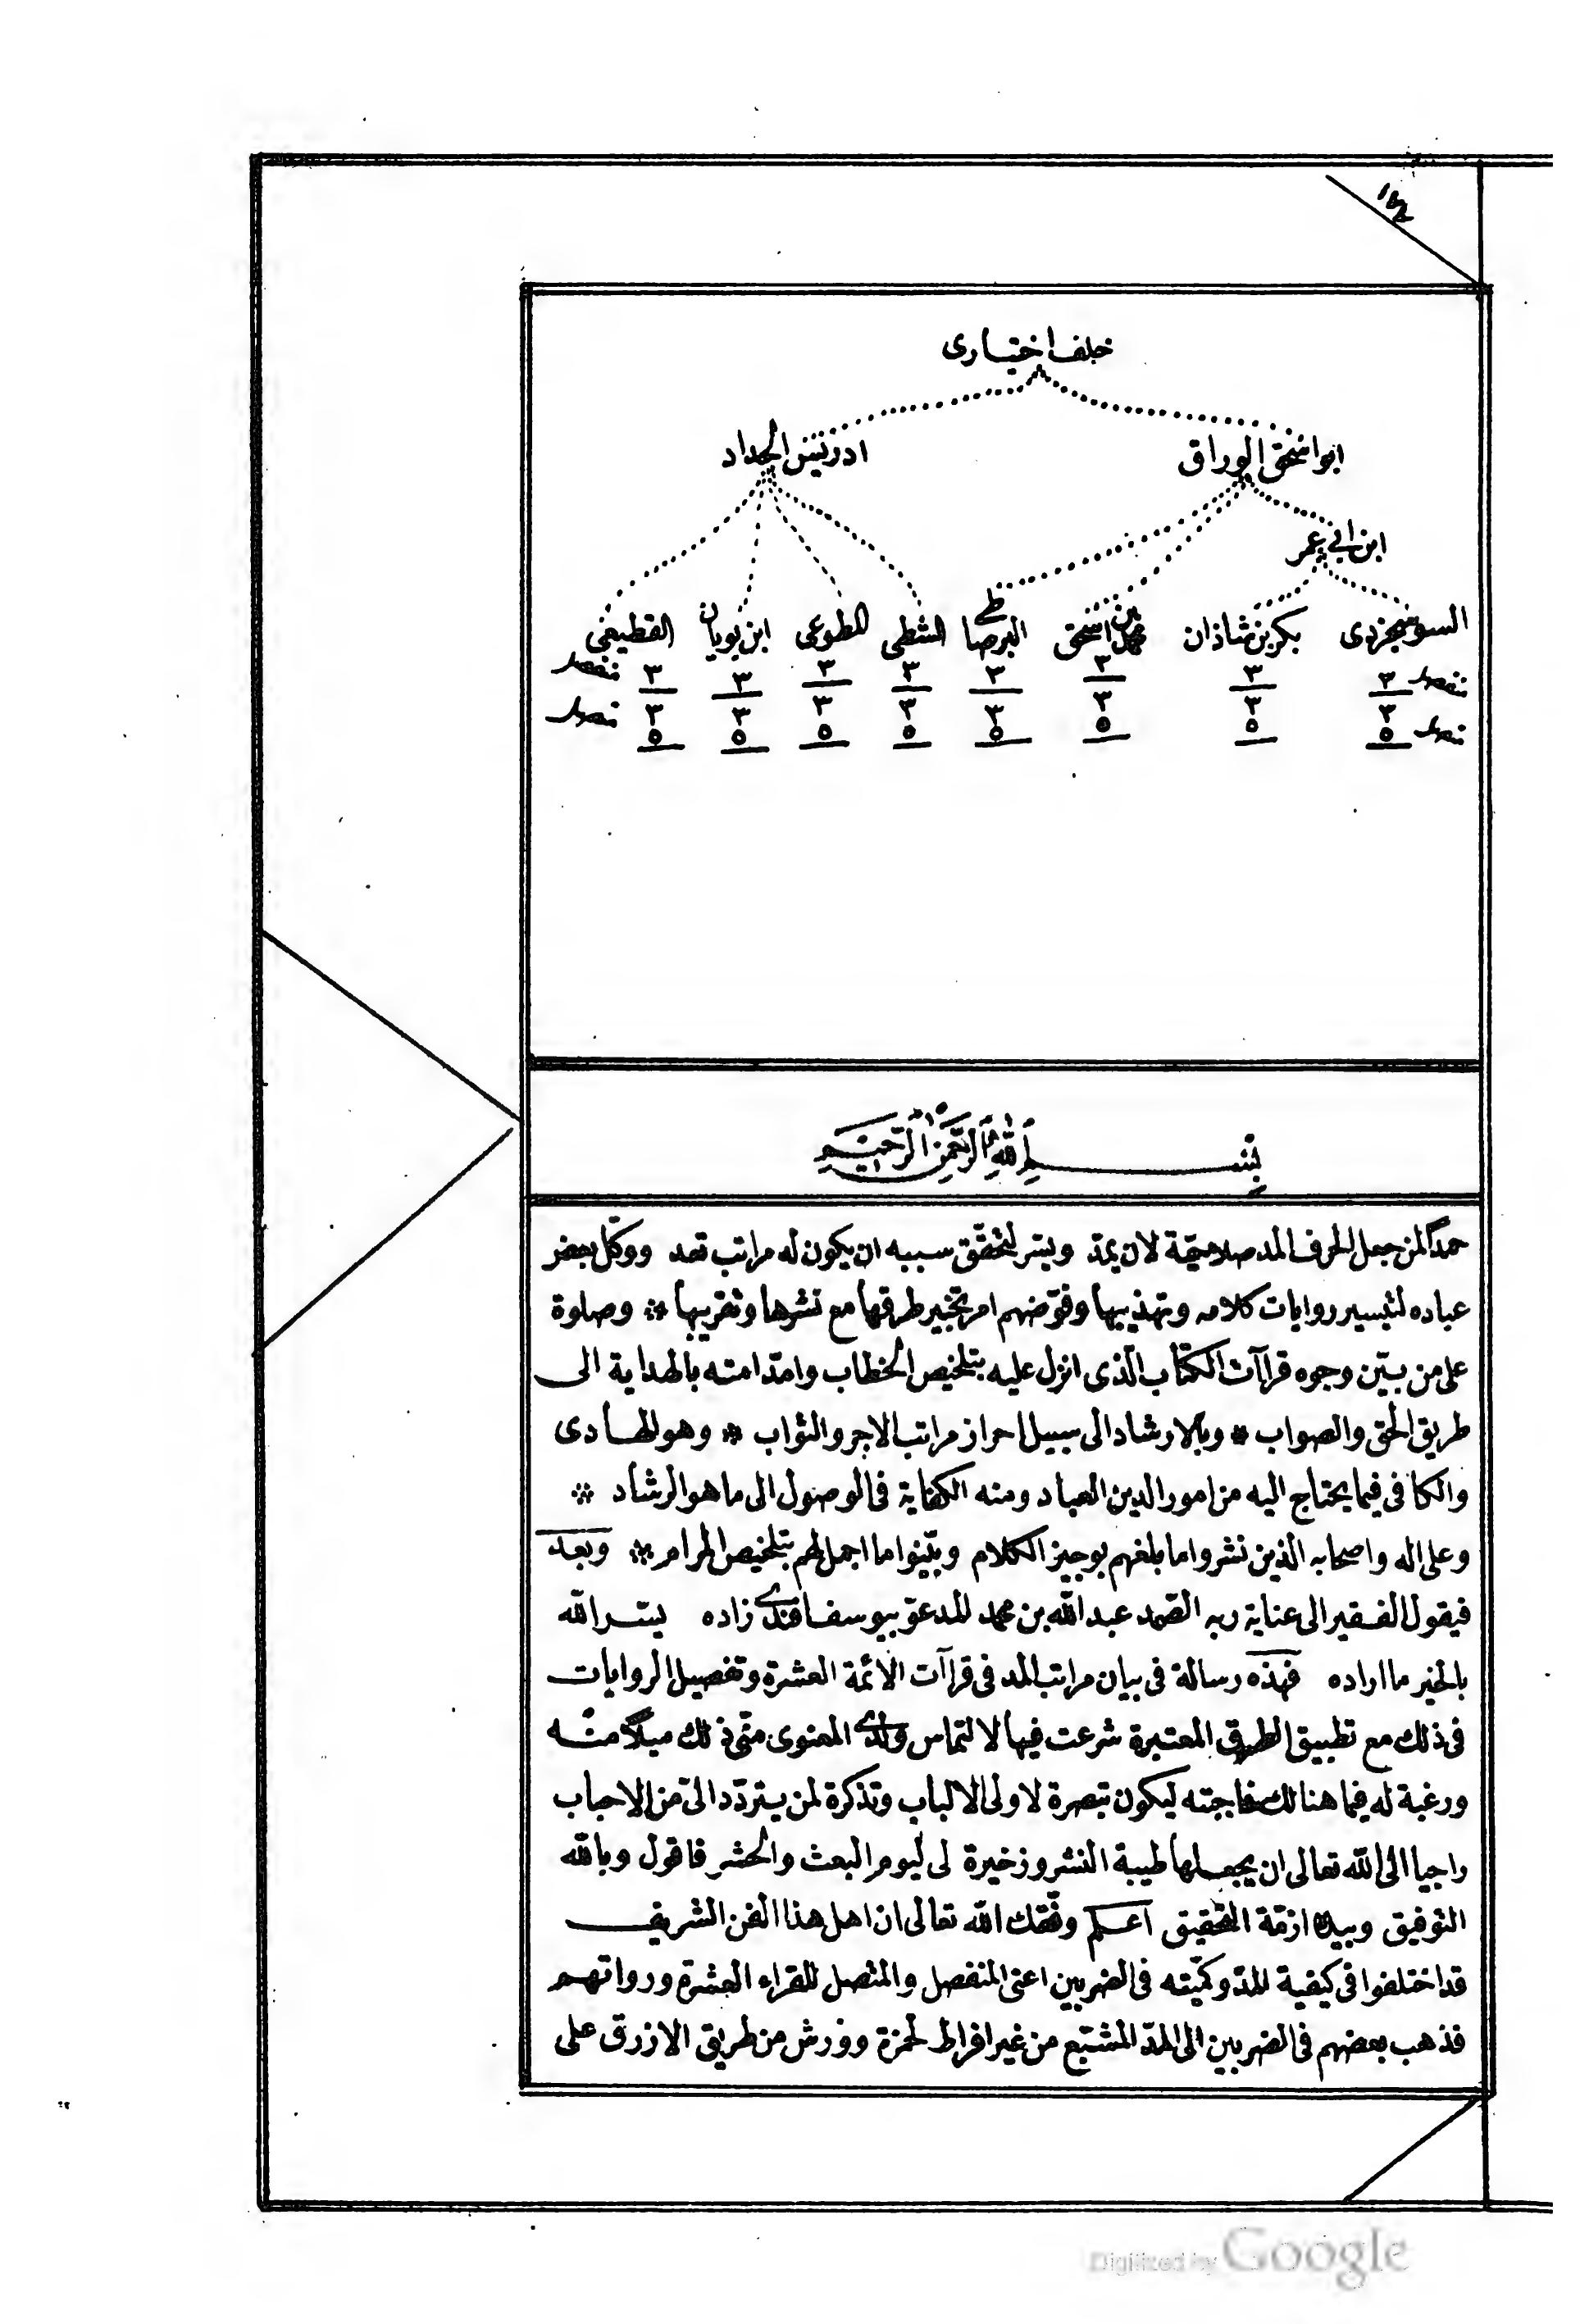 ١٤٢
خلف اختيارى
ابو اسحق الوراق ادريس الحداد
ابن ابى عمر
السوسنجردى بكر بن شاذان محمد بن اسحق البرصاطى الشطى المطوعى ابن بويان القطيعى
منفصل ٣ ٣ ٣ ٣ ٣ ٣ ٣ ٣ منفصل
متصل ٣ ٣ ٣ ٣ ٣ ٣ ٣ ٣ متصل
٥ ٥ ٥ ٥ ٥ ٥ ٥ ٥
بِسْمِ اللهِ الرَّحْمنِ الرَّحِيمِ
حمدًا لمن جعل لحرف المد صلاحيّة لان يمدّ ويسّر لتحقّق سببه ان يكون له مراتب تعد ووكّل بعض
عباده لتيسير روايات كلامه وتهذيبها وفوّضهم امر تحبير طرقها مع نشرها وتقريبها ۞ وصلوة
على من بيّن وجوه قراآت الكتاب الّذى انزل عليه بتلخيص الخطاب وامدّ امته بالهداية الى
طريق الحق والصواب ۞ وبالارشاد الى سبيل احراز مراتب الاجر والثواب ۞ وهو الهادى
والكافى فيما يحتاج اليه من امور الدين العباد ومنه الكفاية فى الوصول الى ما هو الرشاد ۞
وعلى اله واصحابه الذين نشروا ما بلغهم بوجيز الكلام وبيّنوا ما اجمل لهم بتلخيص المرام ۞ وبعد
فيقول الفقير الى عناية ربه الصّمد عبد الله بن محمد المدعوّ بيوسف افندى زاده يسّر الله
بالخير ما اراده فهذه رسالة فى بيان مراتب المد فى قراآت الائمة العشرة وتفصيل الروايات
فى ذلك مع تطبيق الطرق المعتبرة شرعت فيها لالتماس ولدى المعنوى منّى ذلك ميلاً منه
ورغبة له فيما هنالك فاجبته ليكون تبصرة لاولى الالباب وتذكرة لمن يتردّد الىّ من الاحباب
راجيا الى الله تعالى ان يجعلها طيبة النشر وزخيرة لى ليوم البعث والحشر فاقول وبالله
التوفيق وبيده ازمّة التحقيق اعلم وفّقك الله تعالى ان اهل هذا الفن الشريف
قد اختلفوا فى كيفية المدّ وكمّيته فى الضربين اعنى المنفصل والمتصل للقراء العشرة ورواتهم
فذهب بعضهم فى الضربين الى المدّ المشبع من غير افراط لحمزة وورش من طريق الازرق على
Digitized by Google